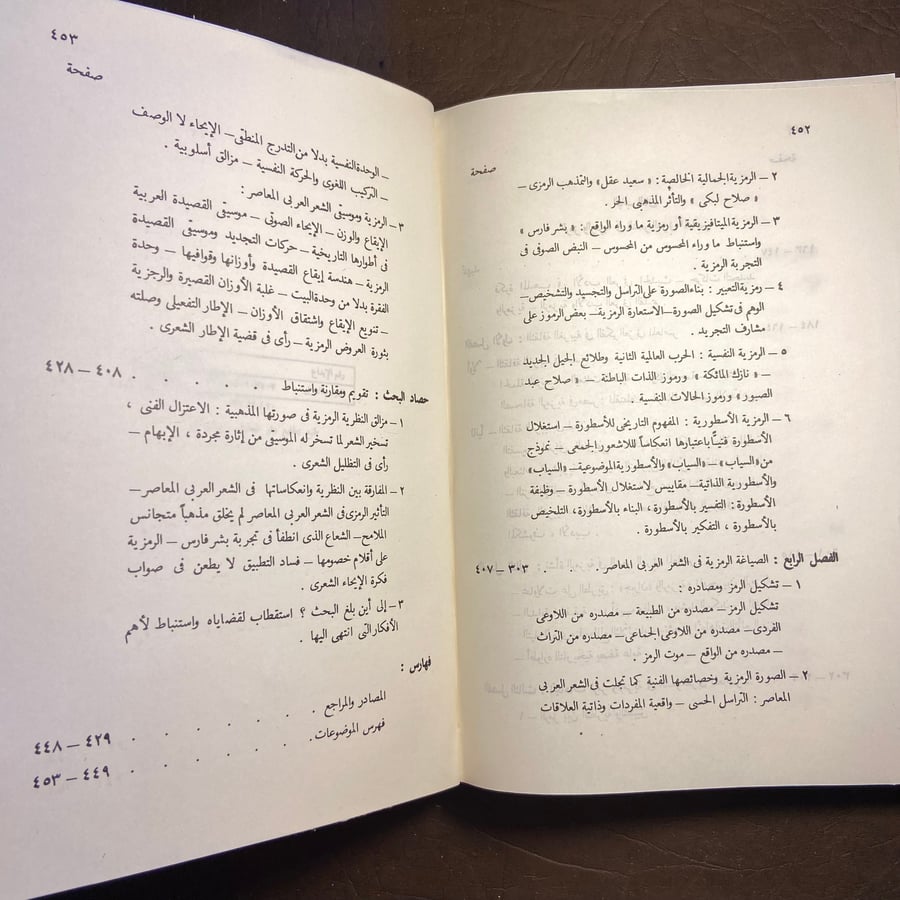 ٤٥٢
صفحة
٢ – الرمزية الجمالية الخالصة : « سعيد عقل » والتمذهب الرمزى –
« صلاح لبكى » والتأثر المذهبى الحر .
٣ – الرمزية الميتافيزيقية أو رمزية ما وراء الواقع : « بشر فارس »
واستنباط ما وراء المحسوس من المحسوس – النبض الصوفى فى
التجربة الرمزية .
٤ – رمزية التعبير : بناء الصورة على التراسل والتجسيد والتشخيص –
الوهم فى تشكيل الصورة – الاستعارة الرمزية – بعض الرموز على
مشارف التجريد .
٥ – الرمزية النفسية : الحرب العالمية الثانية وطلائع الجيل الجديد
– « نازك الملائكة » ورموز الذات الباطنة – « صلاح عبد
الصبور » ورموز الحالات النفسية .
٦ – الرمزية الأسطورية : المفهوم التاريخى للأسطورة – استغلال
الأسطورة فنيًّا باعتبارها انعكاساً للاشعور الجمعى – نموذج
من « السياب » – « السياب » والأسطورية الموضوعية – « السياب »
والأسطورية الذاتية – مقاييس لاستغلال الأسطورة – وظيفة
الأسطورة : التفسير بالأسطورة ، البناء بالأسطورة ، التلخيص
بالأسطورة ، التفكير بالأسطورة .
الفصل الرابع : الصياغة الرمزية فى الشعر العربى المعاصر . ٣٠٣ – ٤٠٧
١ – تشكيل الرمز ومصادره :
تشكيل الرمز – مصدره من الطبيعة – مصدره من اللاوعى
الفردى – مصدره من اللاوعى الجماعى – مصدره من التراث
– مصدره من الواقع – موت الرمز .
٢ – الصورة الرمزية وخصائصها الفنية كما تجلت فى الشعر العربى
المعاصر : التراسل الحسى – واقعية المفردات وذاتية العلاقات
٤٥٣
صفحة
– الوحدة النفسية بدلا من التدرج المنطقى – الإيحاء لا الوصف
– التركيب اللغوى والحركة النفسية – مزالق أسلوبية .
٣ – الرمزية وموسيقى الشعر العربى المعاصر :
الإيقاع والوزن – الإيحاء الصوتى – موسيقى القصيدة العربية
فى أطوارها التاريخية – حركات التجديد وموسيقى القصيدة
الرمزية – هندسة إيقاع القصيدة وأوزانها وقوافيها – وحدة
الفقرة بدلا من وحدة البيت – غلبة الأوزان القصيرة والرجزية
– تنويع الإيقاع واشتقاق الأوزان – الإطار التفعيلى وصلته
بثورة العروض الرمزية – رأى فى قضية الإطار الشعرى .
حصاد البحث : تقويم ومقارنة واستنباط . . . . . . ٤٠٨ – ٤٢٨
١ – مزالق النظرية الرمزية فى صورتها المذهبية : الاعتزال الفنى ،
تسخير الشعر لما تسخر له الموسيقى من إثارة مجردة ، الإبهام –
رأى فى التظليل الشعرى .
٢ – المفارقة بين النظرية وانعكاساتها فى الشعر العربى المعاصر –
التأثير الرمزى فى الشعر العربى المعاصر لم يخلق مذهباً متجانس
الملامح – الشعاع الذى انطفأ فى تجربة بشر فارس – الرمزية
على أقلام خصومها – فساد التطبيق لا يطعن فى صواب
فكرة الإيحاء الشعرى .
٣ – إلى أين بلغ البحث ؟ استقطاب لقضاياه واستنباط لأهم
الأفكار التى انتهى إليها .
فهارس :
المصادر والمراجع . . . . . . . ٤٢٩ – ٤٤٨
فهرس الموضوعات . . . . . . . ٤٤٩ – ٤٥٣